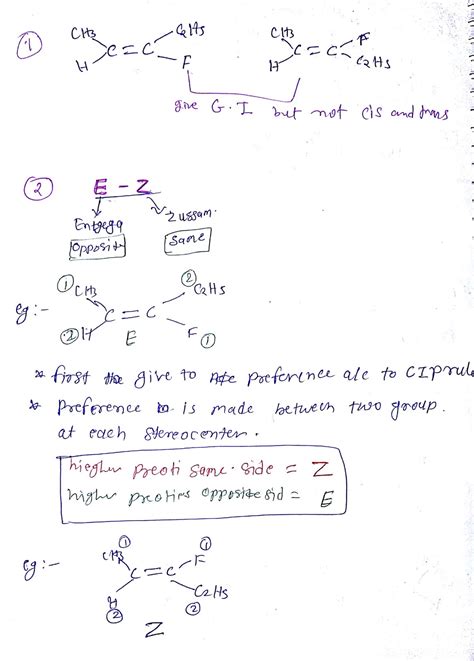 ① CH3 C2H5 CH3 F
C=C C=C
H F H C2H5
give G.I but not cis and trans
② E - Z
Entgega Zussam.
opposite Same
① CH3 ② C2H5
eg:- C=C
② H E F ①
* first the give to preference a/c to CIP rule
* Preference is made between two group.
at each stereocenter.
hiegher preoti same side = Z
higher preoties opposite sid = E
① ①
eg:- CH3 F
C=C
H C2H5
② ②
Z